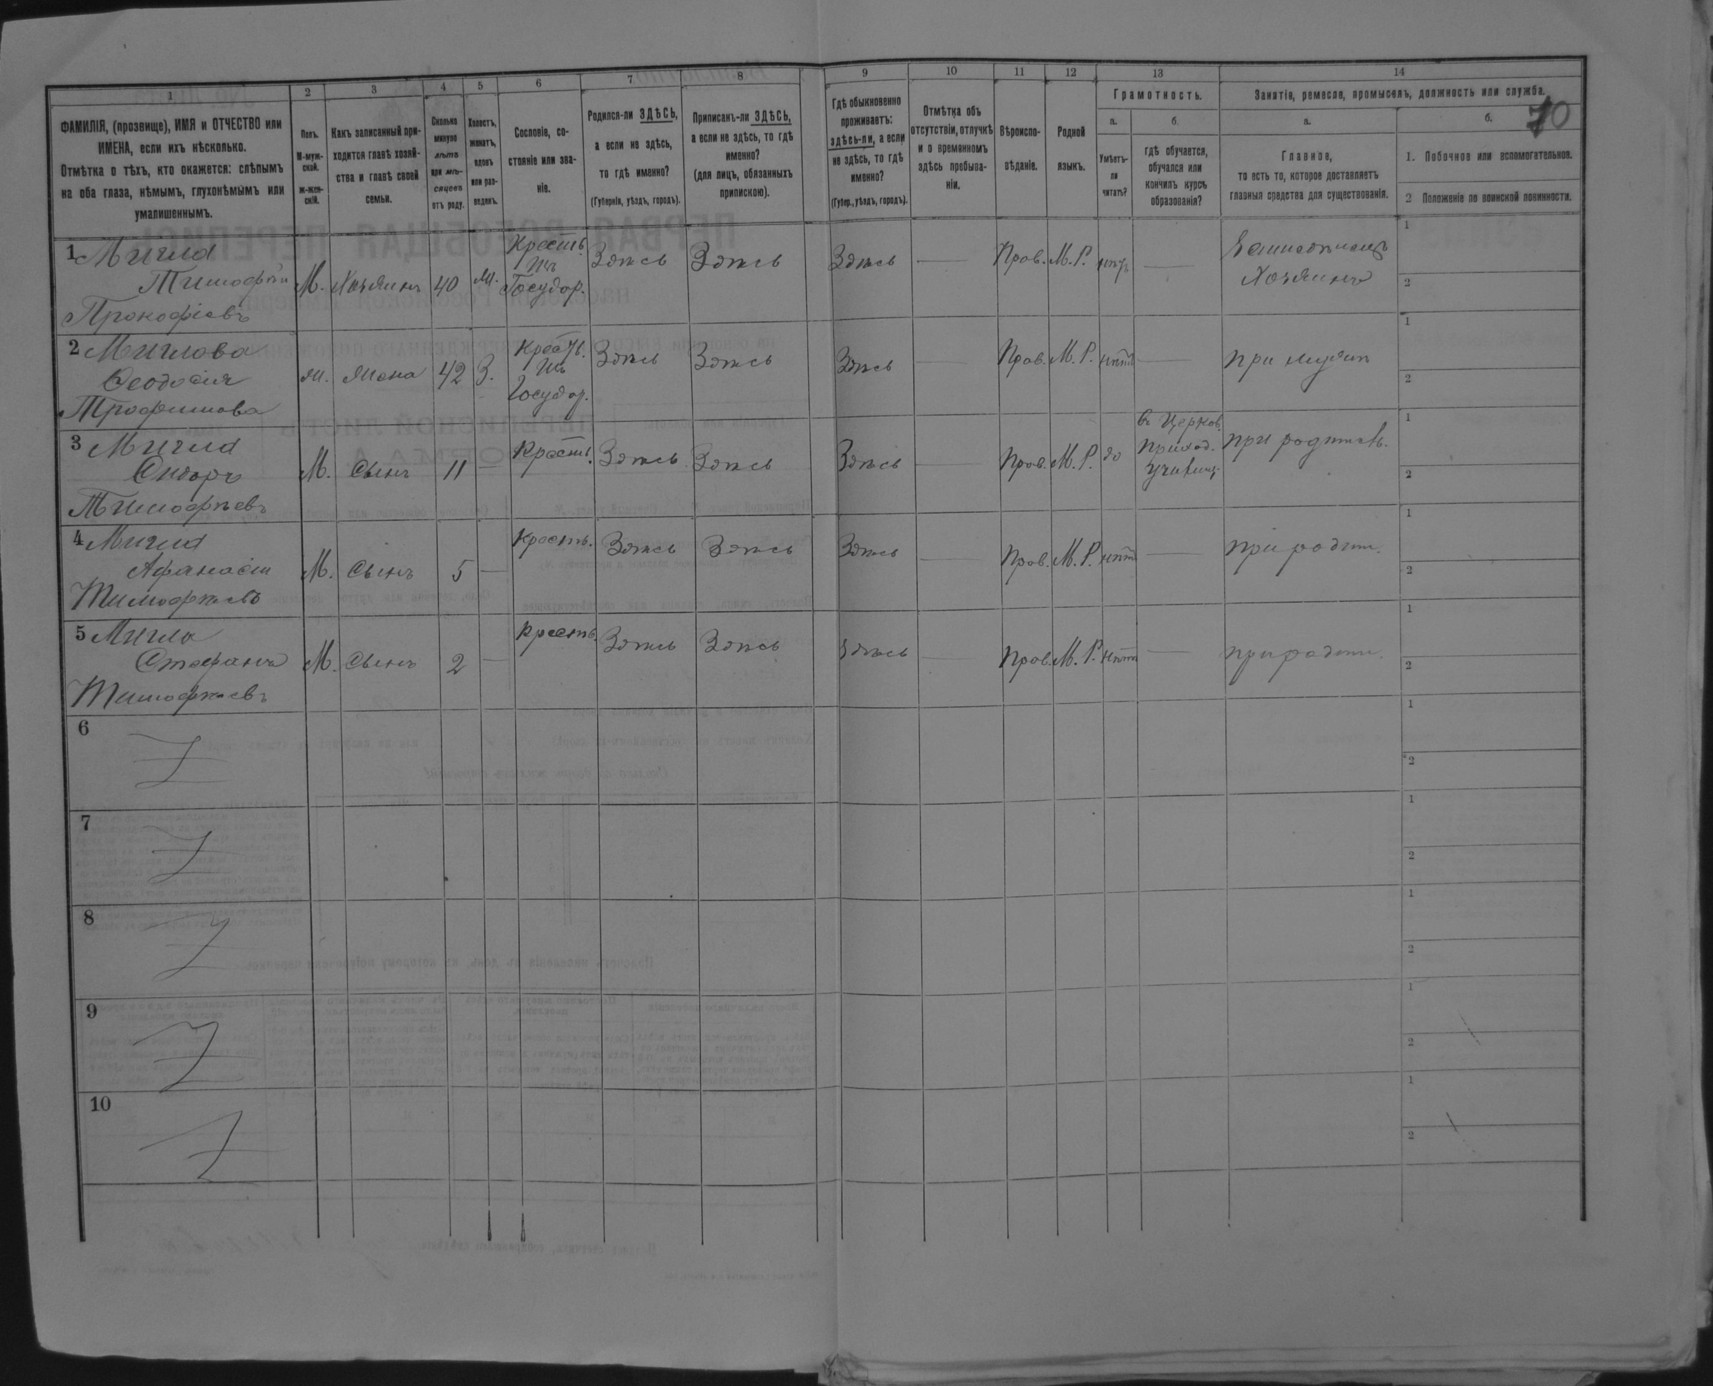 70
1
2
3
4
5
6
7
8
9
10
11
12
13
14
ФАМИЛІЯ, (прозвище), ИМЯ и ОТЧЕСТВО или
ИМЕНА, если ихъ нѣсколько.
Отмѣтка о тѣхъ, кто окажется: слѣпымъ
на оба глаза, нѣмымъ, глухонѣмымъ или
умалишеннымъ.
Полъ.
М-муж-
ской.
Ж-жен-
скій.
Какъ записанный при-
ходится главѣ хозяй-
ства и главѣ своей
семьи.
Сколько
минуло
лѣтъ
или мѣ-
сяцевъ
отъ роду.
Холостъ,
женатъ,
вдовъ
или раз-
веденъ.
Сословіе, со-
стояніе или зва-
ніе.
Родился-ли ЗДѢСЬ,
а если не здѣсь,
то гдѣ именно?
(Губернія, уѣздъ, городъ).
Приписанъ-ли ЗДѢСЬ,
а если не здѣсь, то гдѣ
именно?
(для лицъ, обязанныхъ
припискою).
Гдѣ обыкновенно
проживаетъ:
здѣсь-ли, а если
не здѣсь, то гдѣ
именно?
(Губер., уѣздъ, городъ).
Отмѣтка объ
отсутствіи, отлучкѣ
и о временномъ
здѣсь пребыва-
ніи.
Вѣроиспо-
вѣданіе.
Родной
языкъ.
Грамотность.
а.
Умѣетъ-
ли
читать?
б.
гдѣ обучается,
обучался или
кончилъ курсъ
образованія?
Занятія, ремесло, промыселъ, должность или служба.
а.
Главное,
то есть то, которое доставляетъ
главныя средства для существованія.
б.
1. Побочное или вспомогательное.
2 Положеніе по воинской повинности.
1 Мигла
Тимофѣй
Прокофіевъ
М. Хозяинъ 40 ж. Крестъ. изъ Государ. Здѣсь Здѣсь Здѣсь — Прав. М.Р. нѣтъ — Хозяинъ
1
2
2 Миглова
Феодосія
Трофимова
ж. жена 42 З. Крестъ. изъ Государ. Здѣсь Здѣсь Здѣсь — Прав. М.Р. нѣтъ — при мужѣ
1
2
3 Мигла
Тимофѣевъ
М. сынъ 11 — Крестъ. Здѣсь Здѣсь Здѣсь — Прав. М.Р. да въ Церков. Приход. училищ. при родител.
1
2
4 Мигла
Афанасій
Тимофѣевъ
М. сынъ 5 — Крестъ. Здѣсь Здѣсь Здѣсь — Прав. М.Р. нѣтъ — при родит.
1
2
5 Мигла
Стефанъ
Тимофѣевъ
М. сынъ 2 — Крестъ. Здѣсь Здѣсь Здѣсь — Прав. М.Р. нѣтъ — при родит.
1
2
6
1
2
7
1
2
8
1
2
9
1
2
10
1
2